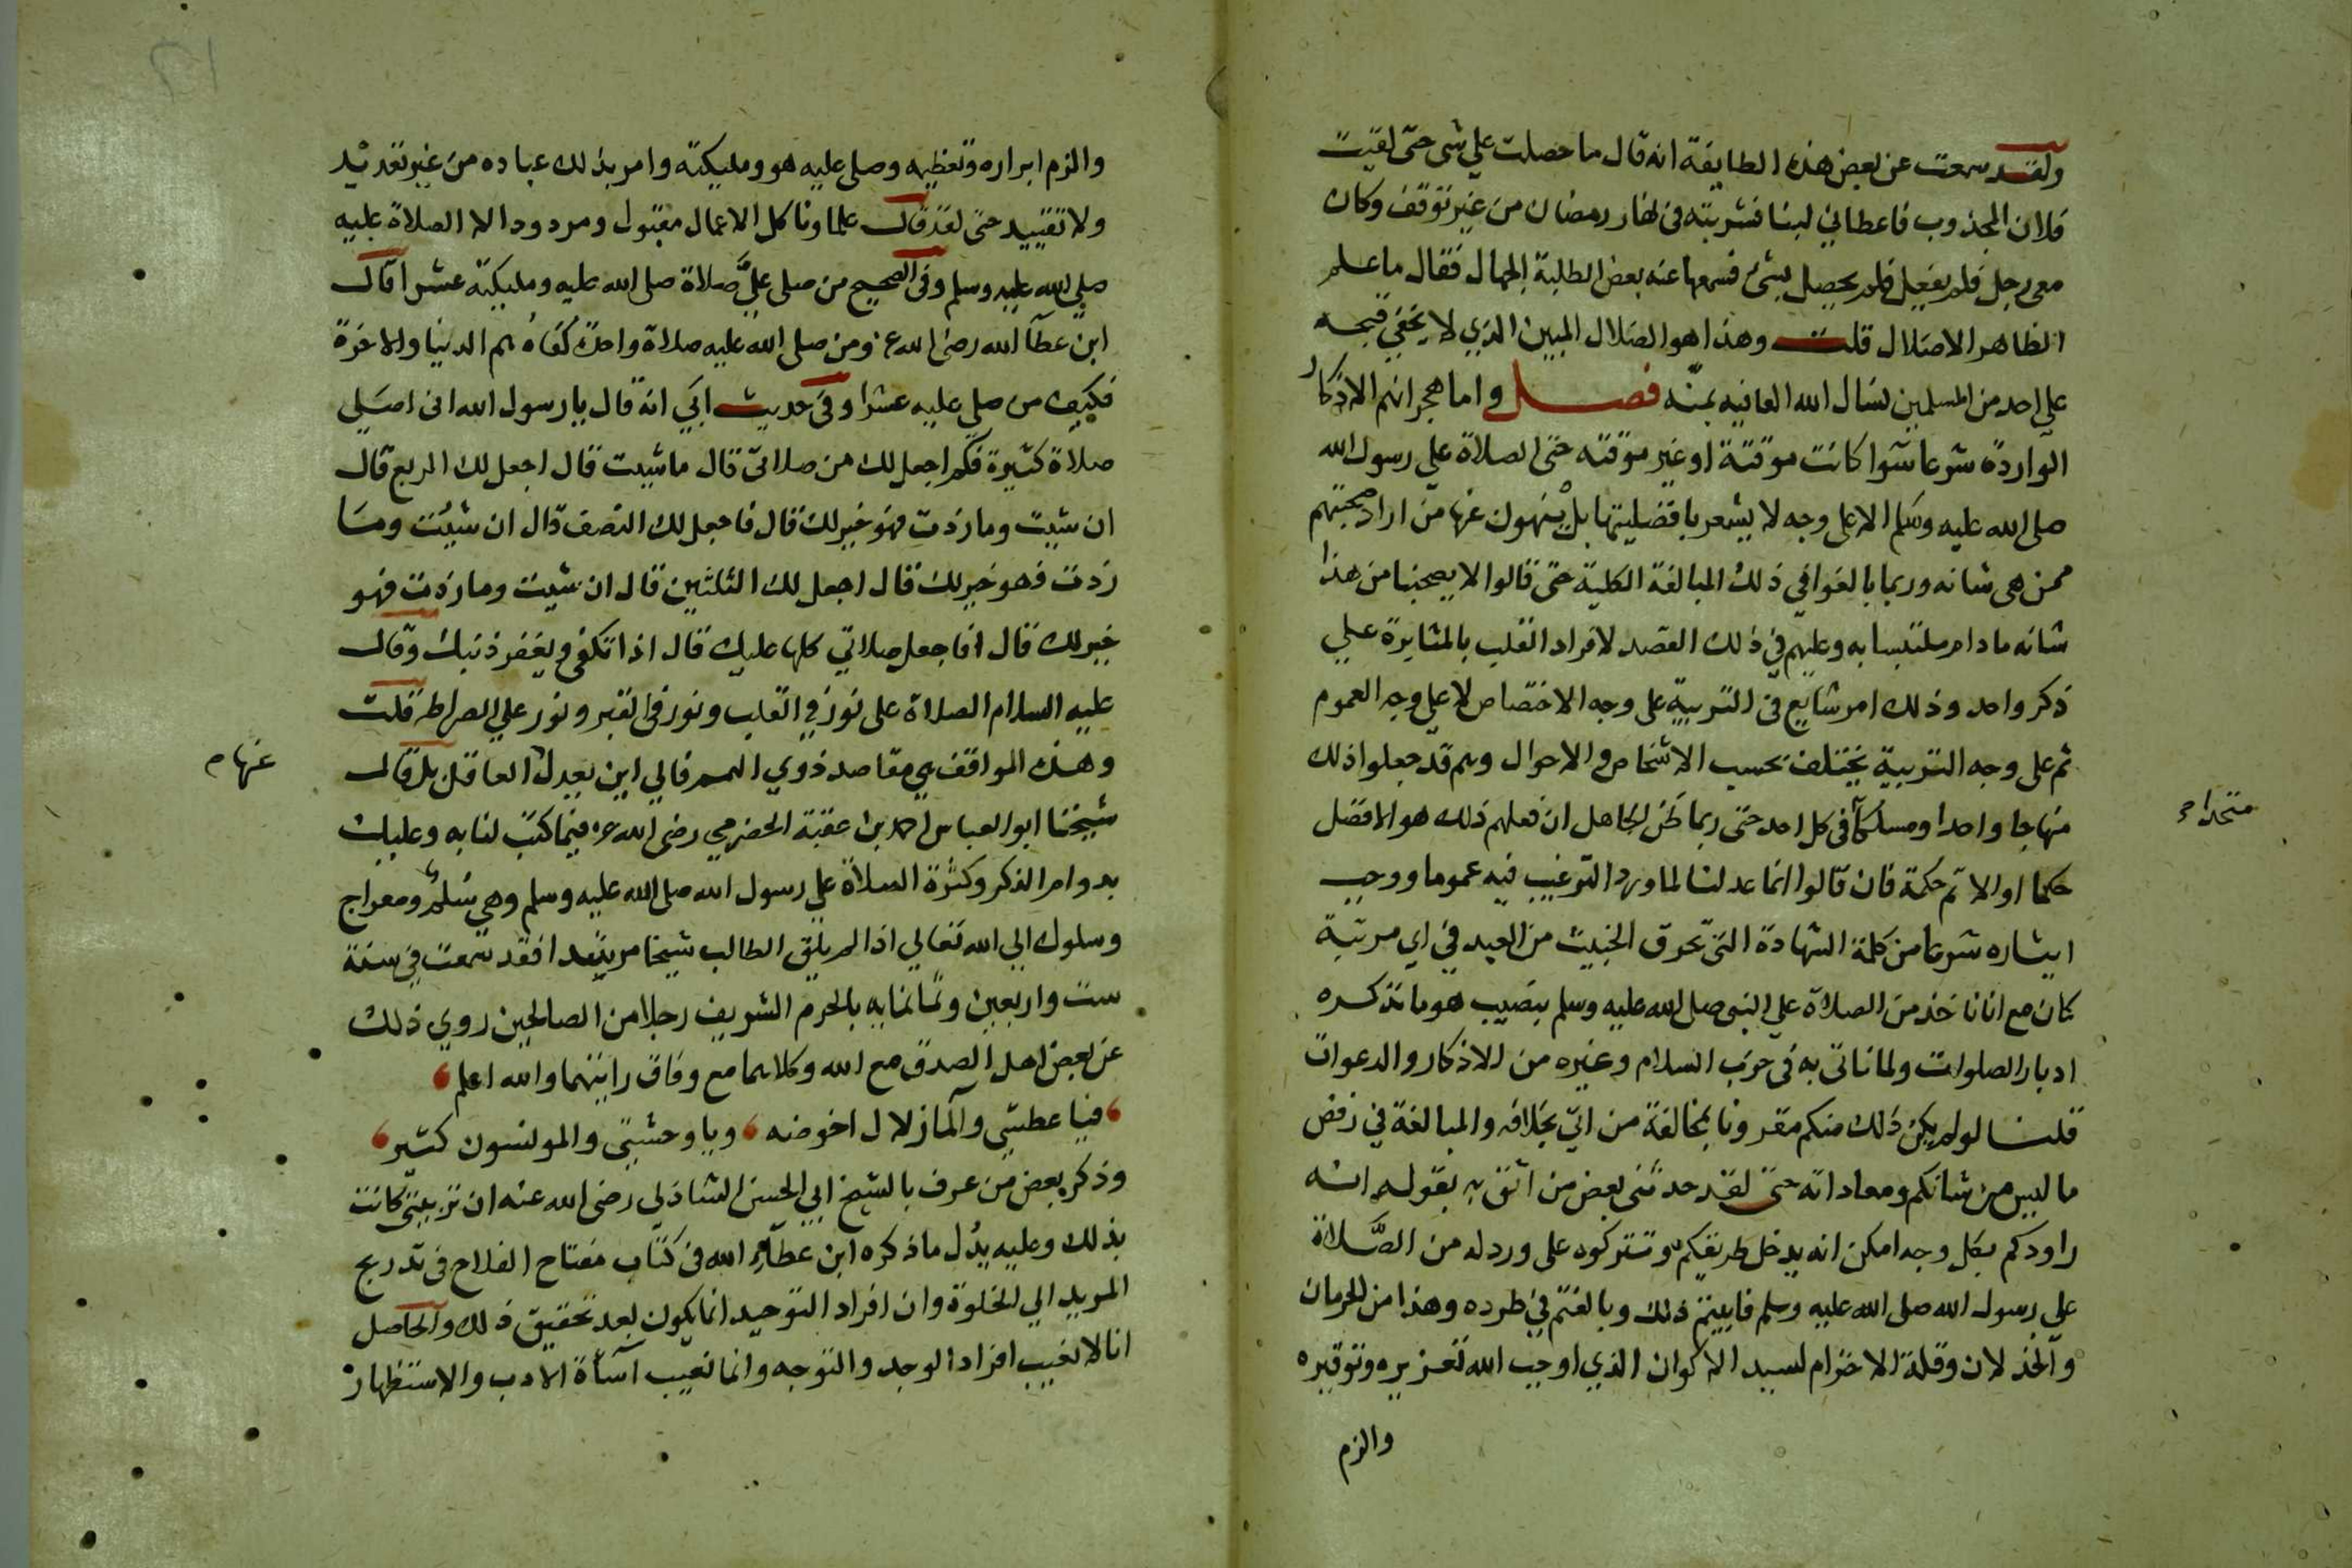 ولقد سمعت عن بعض هذه الطايفة انه قال ما حصلت علي شى حتى لقيت
فلان المجذوب فاعطاني لبنا فشربته فى نهار رمضان من غير توقف وكان
معى رجل فلم يفعل فلم يحصل بشئ فسمعها عنه بعض الطلبة الجهال فقال ما علم
الظاهر الا ضلال قلت وهذا هو الضلال المبين الذي لا يخفي قبحه
علي احد من المسلمين نسال الله العافيه بمنه فصل واما هجرانهم الاذكار
الواردة شرعا سوا كانت موقتة او غير موقته حتى الصلاة علي رسول الله
صلى الله عليه وسلم الا على وجه لا يشعر بافضليتها بل ينهون عنها من اراد صحبتهم
ممن هى شانه وربما بالغوا في ذلك المبالغة الكلية حتى قالوا لا يصحبنا من هذا
شانه ما دام ملتبسا به وعليهم في ذلك القصد لافراد القلب بالمثابرة علي
ذكر واحد وذلك امر شايع فى التربية على وجه الاختصاص لا علي وجه العموم
ثم على وجه التربية يختلف بحسب الاشخاص والاحوال وهم قد جعلوا ذلك
منهاجا واحدا ومسلكا فى كل احد حتى ربما ظن الجاهل ان فعلهم ذلك هو الافضل
حكما او الاتم حكمة فان قالوا انما عدلنا لما ورد الترغيب فيه عموما ووجب
ايثاره شرعا من كلمة الشهادة التى تحرق الخبيث من العبد في اي مرتبة
كان مع انا ناخذ من الصلاة علي النبى صلى الله عليه وسلم بنصيب هو ما نذكره
ادبار الصلوات ولما ناتى به فى حزب السلام وغيره من الاذكار والدعوات
قلنا لو لم يكن ذلك منكم مقرونا بمخالفة من اتى بخلافه والمبالغة في رفض
ما ليس من شانكم ومعاداته حتى لقد حدثنى بعض من اثق به بقوله انه
راودكم بكل وجه امكن انه يدخل طريقكم وتتركوه على ورد له من الصلاة
علي رسول الله صلى الله عليه وسلم فابيتم ذلك وبالغتم في طرده وهذا من الحرمان
والخذلان وقلة الاحترام لسيد الاكوان الذي اوجب الله تعزيره وتوقيره
والزم
والزم ابراره وتعظيمه وصلى عليه هو ومليكته وامر بذلك عباده من غير تحديد
ولا تقييد حتى لقد قال علماونا كل الاعمال مقبول ومردود الا الصلاة عليه
صلي الله عليه وسلم وفى الصحيح من صلى علي صلاة صلى الله عليه ومليكته عشرا قال
ابن عطآ الله رضى الله عنه ومن صلى الله عليه صلاة واحدة كفاه هم الدنيا والاخرة
فكيف من صلي عليه عشرا وفى حديث ابي انه قال يا رسول الله انى اصلي
صلاة كثيرة فكم اجعل لك من صلاتى قال ما شيت قال اجعل لك الربع قال
ان شيت وما زدت فهو خير لك قال فاجعل لك النصف قال ان شيت وما
زدت فهو خير لك قال اجعل لك الثلثين قال ان شيت وما زدت فهو
خير لك قال افاجعل صلاتي كلها عليك قال اذا تكفى ويغفر ذنبك وقال
عليه السلام الصلاة على نور في القلب ونور فى القبر ونور علي الصراط قلت
وهذه المواقف هي مقاصد ذوي الهمم فالي اين يعدل العاقل بل قال
شيخنا ابو العباس احمد بن عقبة الحضرمي رضى الله عنه فيما كتب لنا به وعليك
بدوام الذكر وكثرة الصلاة علي رسول الله صلى الله عليه وسلم وهي سلم ومعراج
وسلوك الي الله تعالي اذا لم يلق الطالب شيخا مرشدا فقد سمعت في سنة
ست واربعين وثمانمايه بالحرم الشريف رجلا من الصالحين روي ذلك
عن بعض اهل الصدق مع الله وكلاهما مع وفاق رايتهما والله اعلم
فيا عطشي والمآ زلال اخوضه ويا وحشتى والمونسون كثير
وذكر بعض من عرف بالشيخ ابي الحسن الشاذلي رضى الله عنه ان تربيتى كانت
بذلك وعليه يدل ما ذكره ابن عطآء الله فى كتاب مفتاح الفلاح فى تدريج
المريد الي الخلوة وان افراد التوحيد انما يكون بعد تحقيق ذلك والحاصل
انا لا نعيب افراد الوجد والتوجه وانما نعيب اسآة الادب والاستظهار